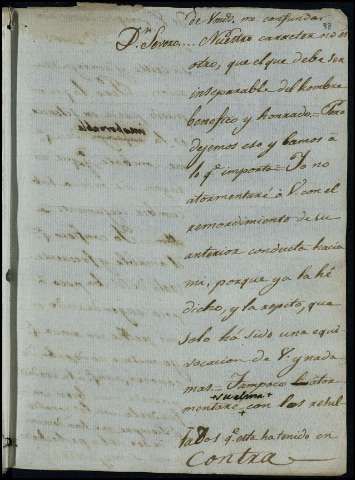 98
de Vmds. me confunda.
Dn. Severo.... Nuestro caracter no es
otro, que el que debe ser
inseparable del hombre
benefico y honrado = Pero
dejemos eso y bamos á
lo qe. importa = Yo no
atormentaré á V. con el
remordimiento de su
anterior conducta hacia
mi, porque ya la hé
dicho, y la repito, que
solo há sido una equi
vocacion de V. y nada
mas = Tampoco
+ su alma +
mentaré con los resul
tados qe. esta ha tenido en
contra